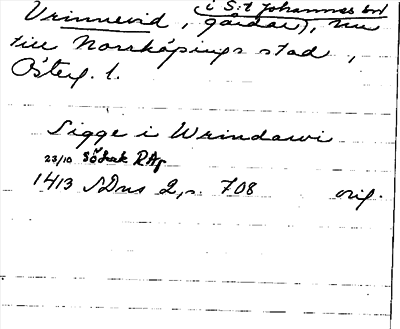 Vrinnevid, (i S:t Johannes bd
gårdar), nu
till Norrköpings stad,
Österg. l.
Sigge i Wrindawi
23/10 Söderk RAp
1413 SDns 2, s. 708 orig.